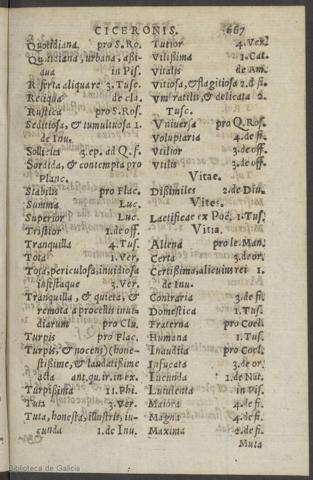 CICERONIS. 667
Quotidiana pro S. Ro.
Quotidiana, urbana, assi-
dua in Pis.
Referta aliqua re 3. Tusc.
Reliqua de cla.
Rustica pro S. Ros.
Seditiosa, & tumultuosa 1.
de Inu.
Sollicita 3. ep. ad Q. f.
Sordida, & contempta pro
Planc.
Stabilis pro Flac.
Summa Luc.
Superior Luc.
Tristior 1. de off.
Tranquilla 4. Tus.
Tota 1. Ver.
Tota, periculosa, inuidiosa
infestaque 3. Ver.
Tranquilla, & quieta, &
remota a procellis inui-
diarum pro Clu.
Turpis pro Flac.
Turpis, & nocens) (hone-
stissime, & laudatissime
acta ant. qu. ir. in ex.
Turpissima 11. Phi.
Tuta 3. Ver.
Tuta, honesta, illustris, iu-
cunda 1. de Inu.
Tutior 4. Ver.
Vilissima 1. Cat.
Vitalis de Am.
Vitiosa, & flagitiosa 2. d. fi.
Vmbratilis, & delicata 2.
Tusc.
Vniuersa pro Q. Ros.
Voluptaria 4. de fi.
Vtilior 3. de off.
Vtilis 3. de off.
Vitae.
Dissimiles 2. de Diu.
Vites.
Laetificae ex Poë. 1. Tus.
Vitia.
Aliena pro le. Man.
Certa 3. de or.
Certissima, alicuius rei 1.
de Inu.
Contraria 3. de fi.
Domestica 1. Tus.
Fraterna pro Coel.
Humana 1. Tus.
Inaudita pro Coel.
Infucata 3. de or.
Iucunda 1. de Nat.
Lutulenta in Pis.
Maiora 4. de fi.
Magna 4. de fi.
Maxima 2. de fi.
Muta
Biblioteca de Galicia